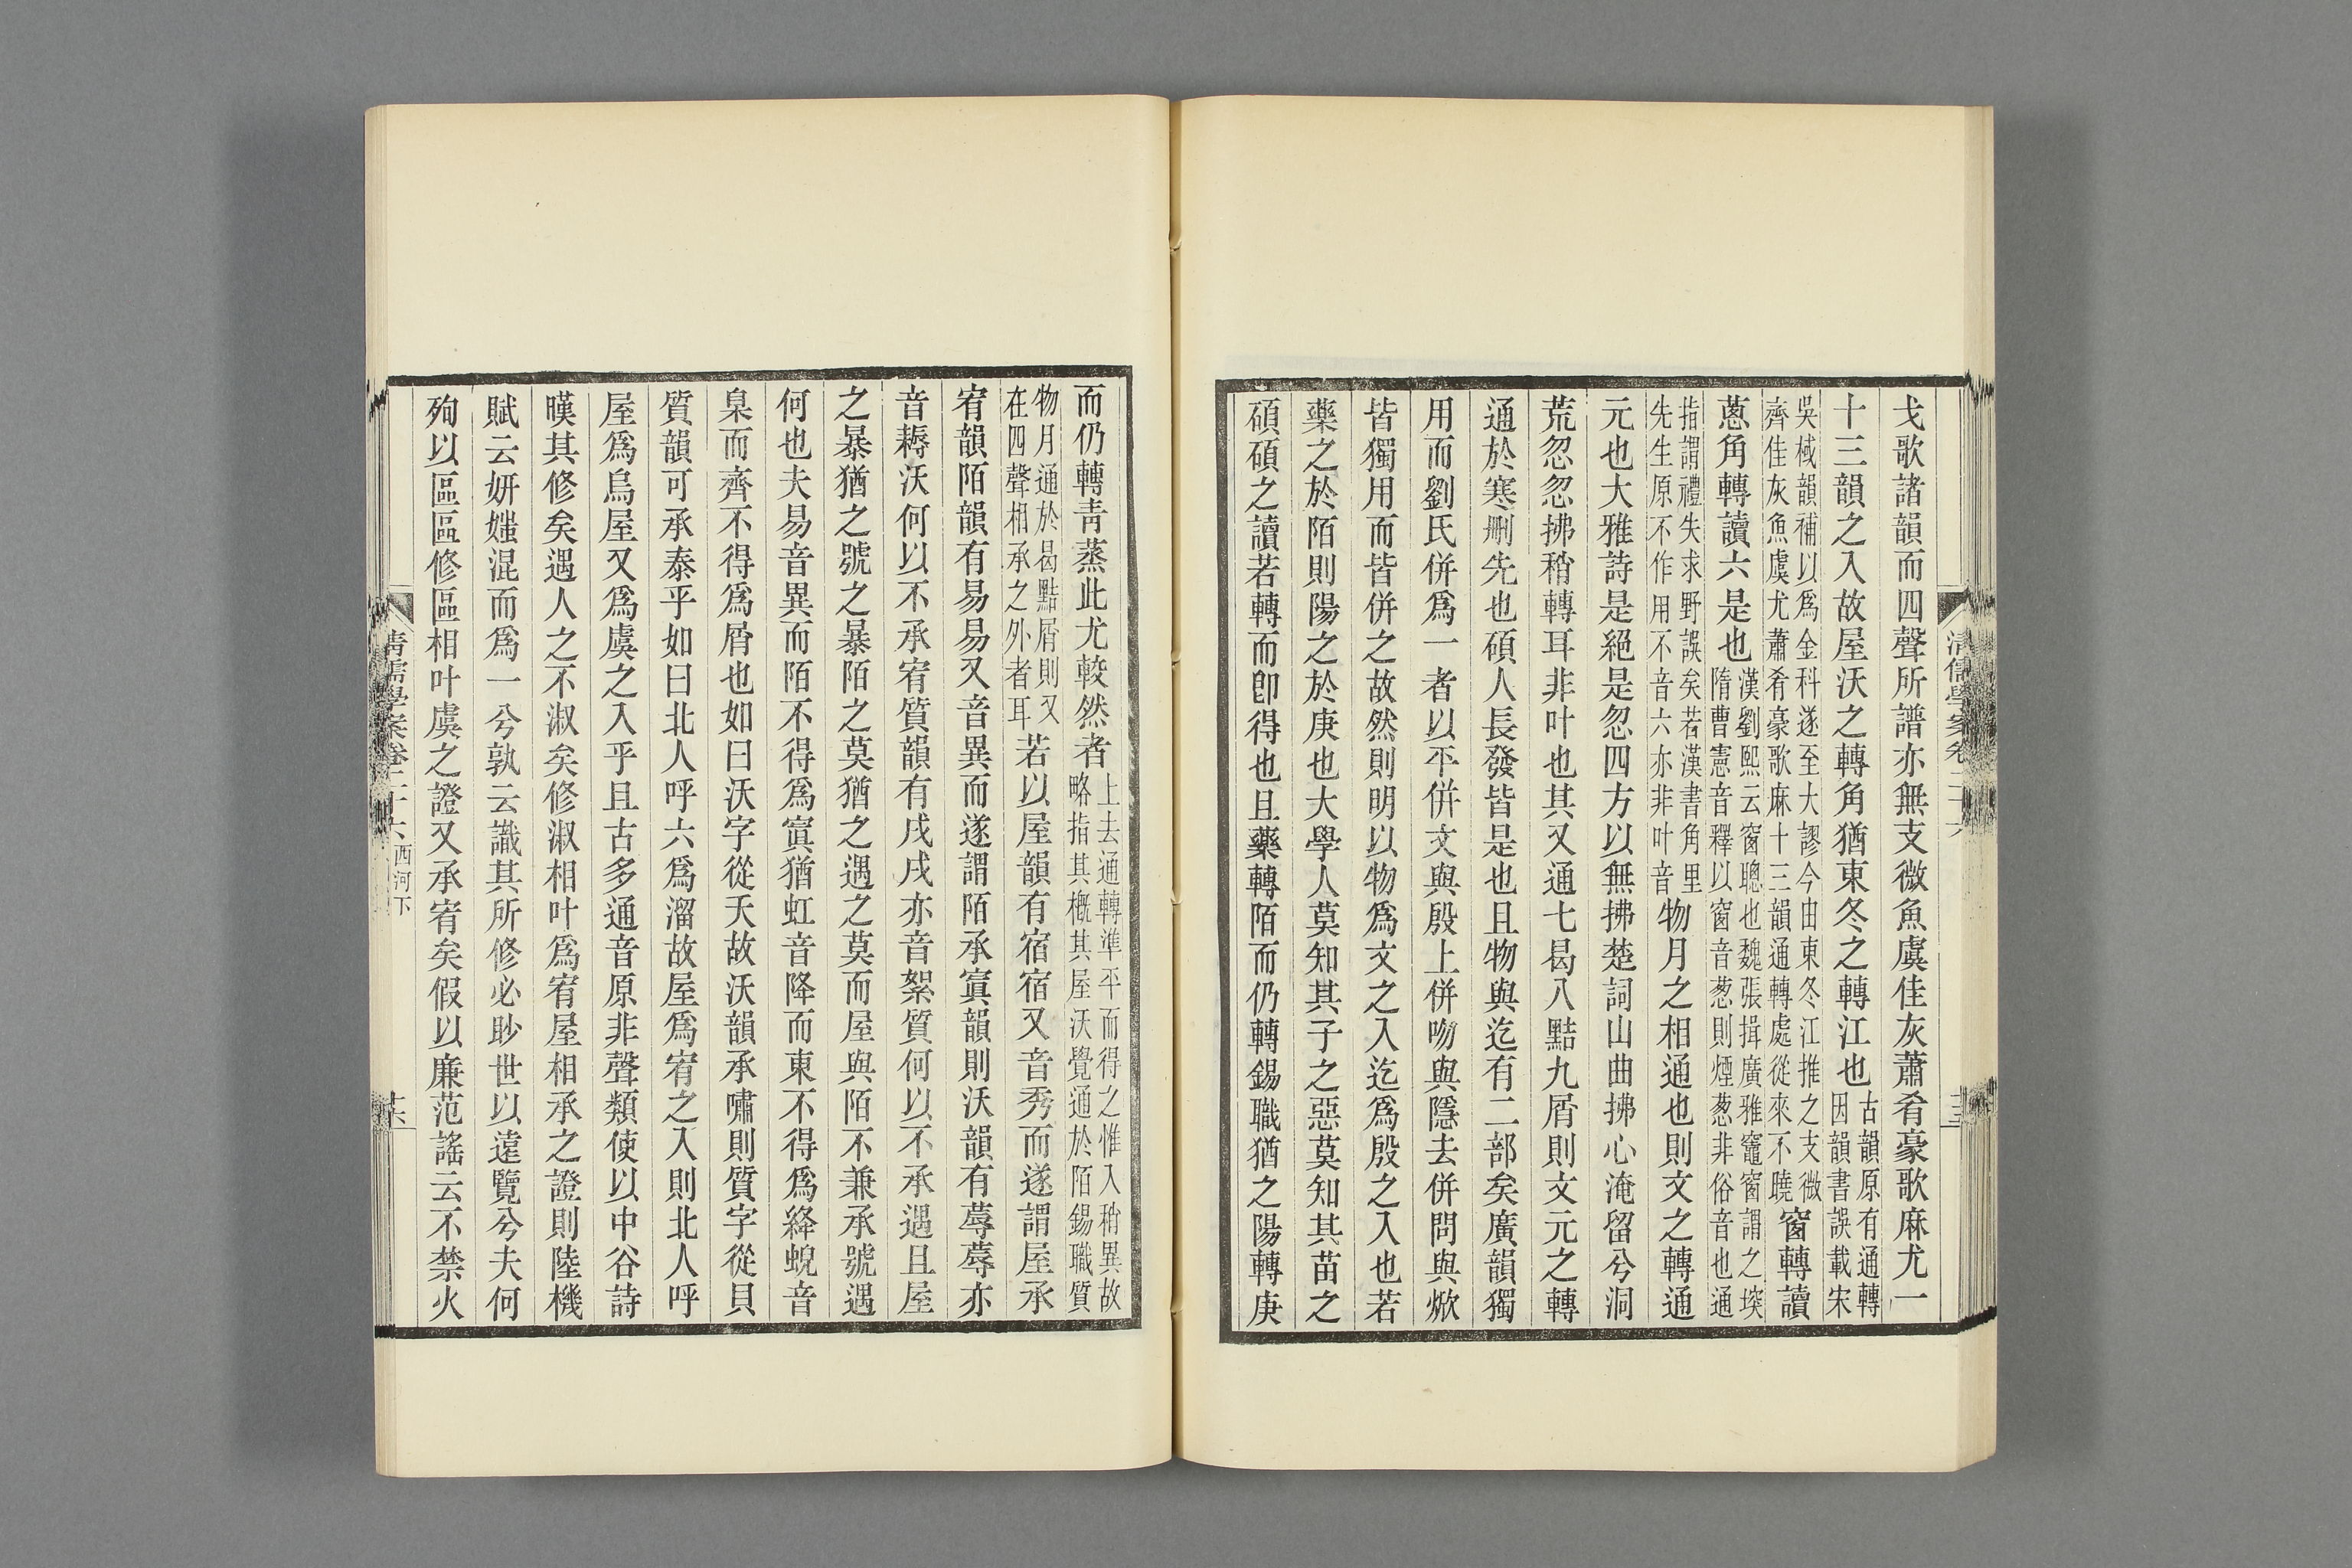 戈歌諸韻而四聲所譜亦無支微魚虞佳灰蕭肴豪歌麻尤一
十三韻之入故屋沃之轉角猶東冬之轉江也古韻原有通轉因韻書誤載宋
吳棫韻補以爲金科遂至大謬今由東冬江推之支微齊佳灰魚虞尤蕭肴豪歌麻十三韻通轉處從來不曉窗轉讀
蔥角轉讀六是也漢劉熙云窗聰也魏張揖廣雅竈窗謂之堗隋曹憲音釋以窗音葱則煙葱非俗音也通
指謂禮失求野誤矣若漢書角里先生原不作用不音六亦非叶音物月之相通也則文之轉通
元也大雅詩是絕是忽四方以無拂楚詞山曲拂心淹留兮洞
荒忽忽拂稍轉耳非叶也其又通七曷八黠九屑則文元之轉
通於寒刪先也碩人長發皆是也且物與迄有二部矣廣韻獨
用而劉氏併爲一者以平併文與殷上併吻與隱去併問與焮
皆獨用而皆併之故然則明以物爲文之入迄爲殷之入也若
藥之於陌則陽之於庚也大學人莫知其子之惡莫知其苗之
碩碩之讀若轉而卽得也且藥轉陌而仍轉錫職猶之陽轉庚
清儒學案卷二十六
而仍轉青蒸此尤較然者上去通轉準平而得之惟入稍異故略指其槪其屋沃覺通於陌錫職質
物月通於曷黠屑則又在四聲相承之外者耳若以屋韻有宿宿又音秀而遂謂屋承
宥韻陌韻有易易又音異而遂謂陌承寘韻則沃韻有蓐蓐亦
音耨沃何以不承宥質韻有戌戌亦音絮質何以不承遇且屋
之暴猶之號之暴陌之莫猶之遇之莫而屋與陌不兼承號遇
何也夫易音異而陌不得爲寘猶虹音降而東不得爲絳蜺音
臬而齊不得爲屑也如曰沃字從夭故沃韻承嘯則質字從貝
質韻可承泰乎如曰北人呼六爲溜故屋爲宥之入則北人呼
屋爲烏屋又爲虞之入乎且古多通音原非聲類使以中谷詩
暵其修矣遇人之不淑矣修淑相叶爲宥屋相承之證則陸機
賦云妍媸混而爲一兮孰云識其所修必眇世以遠覽兮夫何
殉以區區修區相叶虞之證又承宥矣假以廉范謠云不禁火
清儒學案卷二十六 西河下